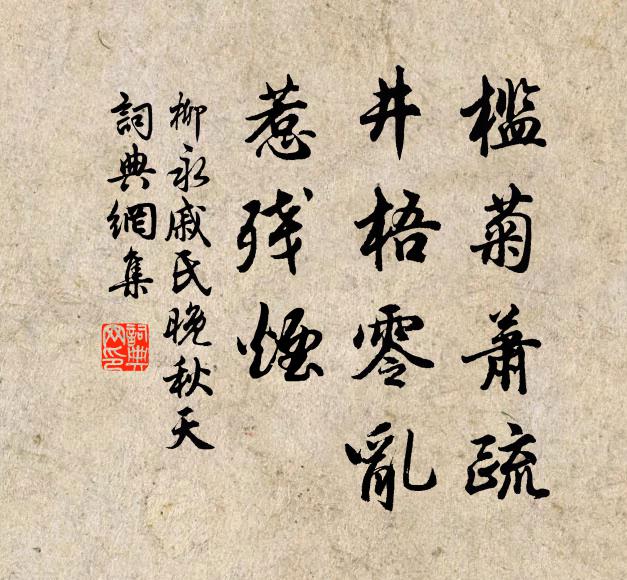 檻菊蕭疏
井梧零亂
惹殘煙
柳永戚氏晚秋天
詞典網集
詞典